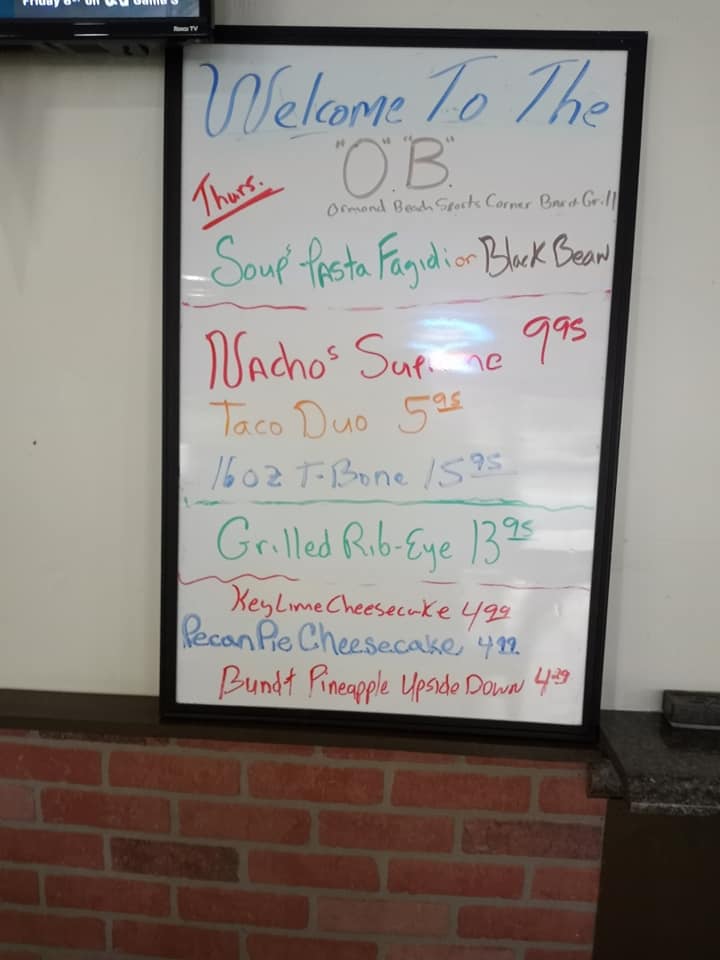 Roku TV
Welcome To The
"O". "B".
Thurs.
Ormond Beach Sports Corner Bar & Grill
Soup's Pasta Fagidi or Black Bean
Nacho's Supreme 995
Taco Duo 595
16oz T-Bone 1595
Grilled Rib-Eye 1395
Key Lime Cheesecake 499
Pecan Pie Cheesecake 499
Bundt Pineapple Upside Down 4